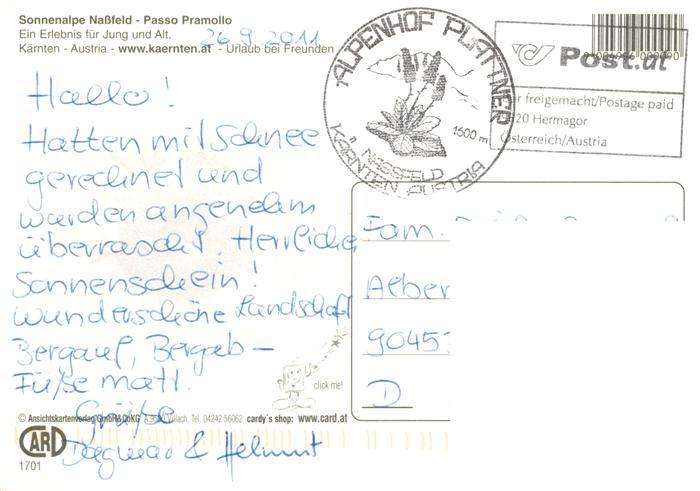 Sonnenalpe Naßfeld - Passo Pramollo
Ein Erlebnis für Jung und Alt.
26.9.2011
Kärnten - Austria - www.kaernten.at - Urlaub bei Freunden
Hallo!
Hatten mit Schnee
gerechnet und
wurden angenehm
überrascht. Herrlicher
Sonnenschein!
wunderschöne Landschaft
Bergauf, Bergab –
Füße matt.
Grüße
Dagmar & Helmut
click me!
© Ansichtskartenverlag GmbH&CoKG Villach, Tel. 04242 56062 cardy´s shop: www.card.at
CARD
1701
ALPENHOF PLATTNER
1600 m
NASSFELD
KÄRNTEN AUSTRIA
Post.at
freigemacht/Postage paid
20 Hermagor
Österreich/Austria
Fam.
Alber
9045
D